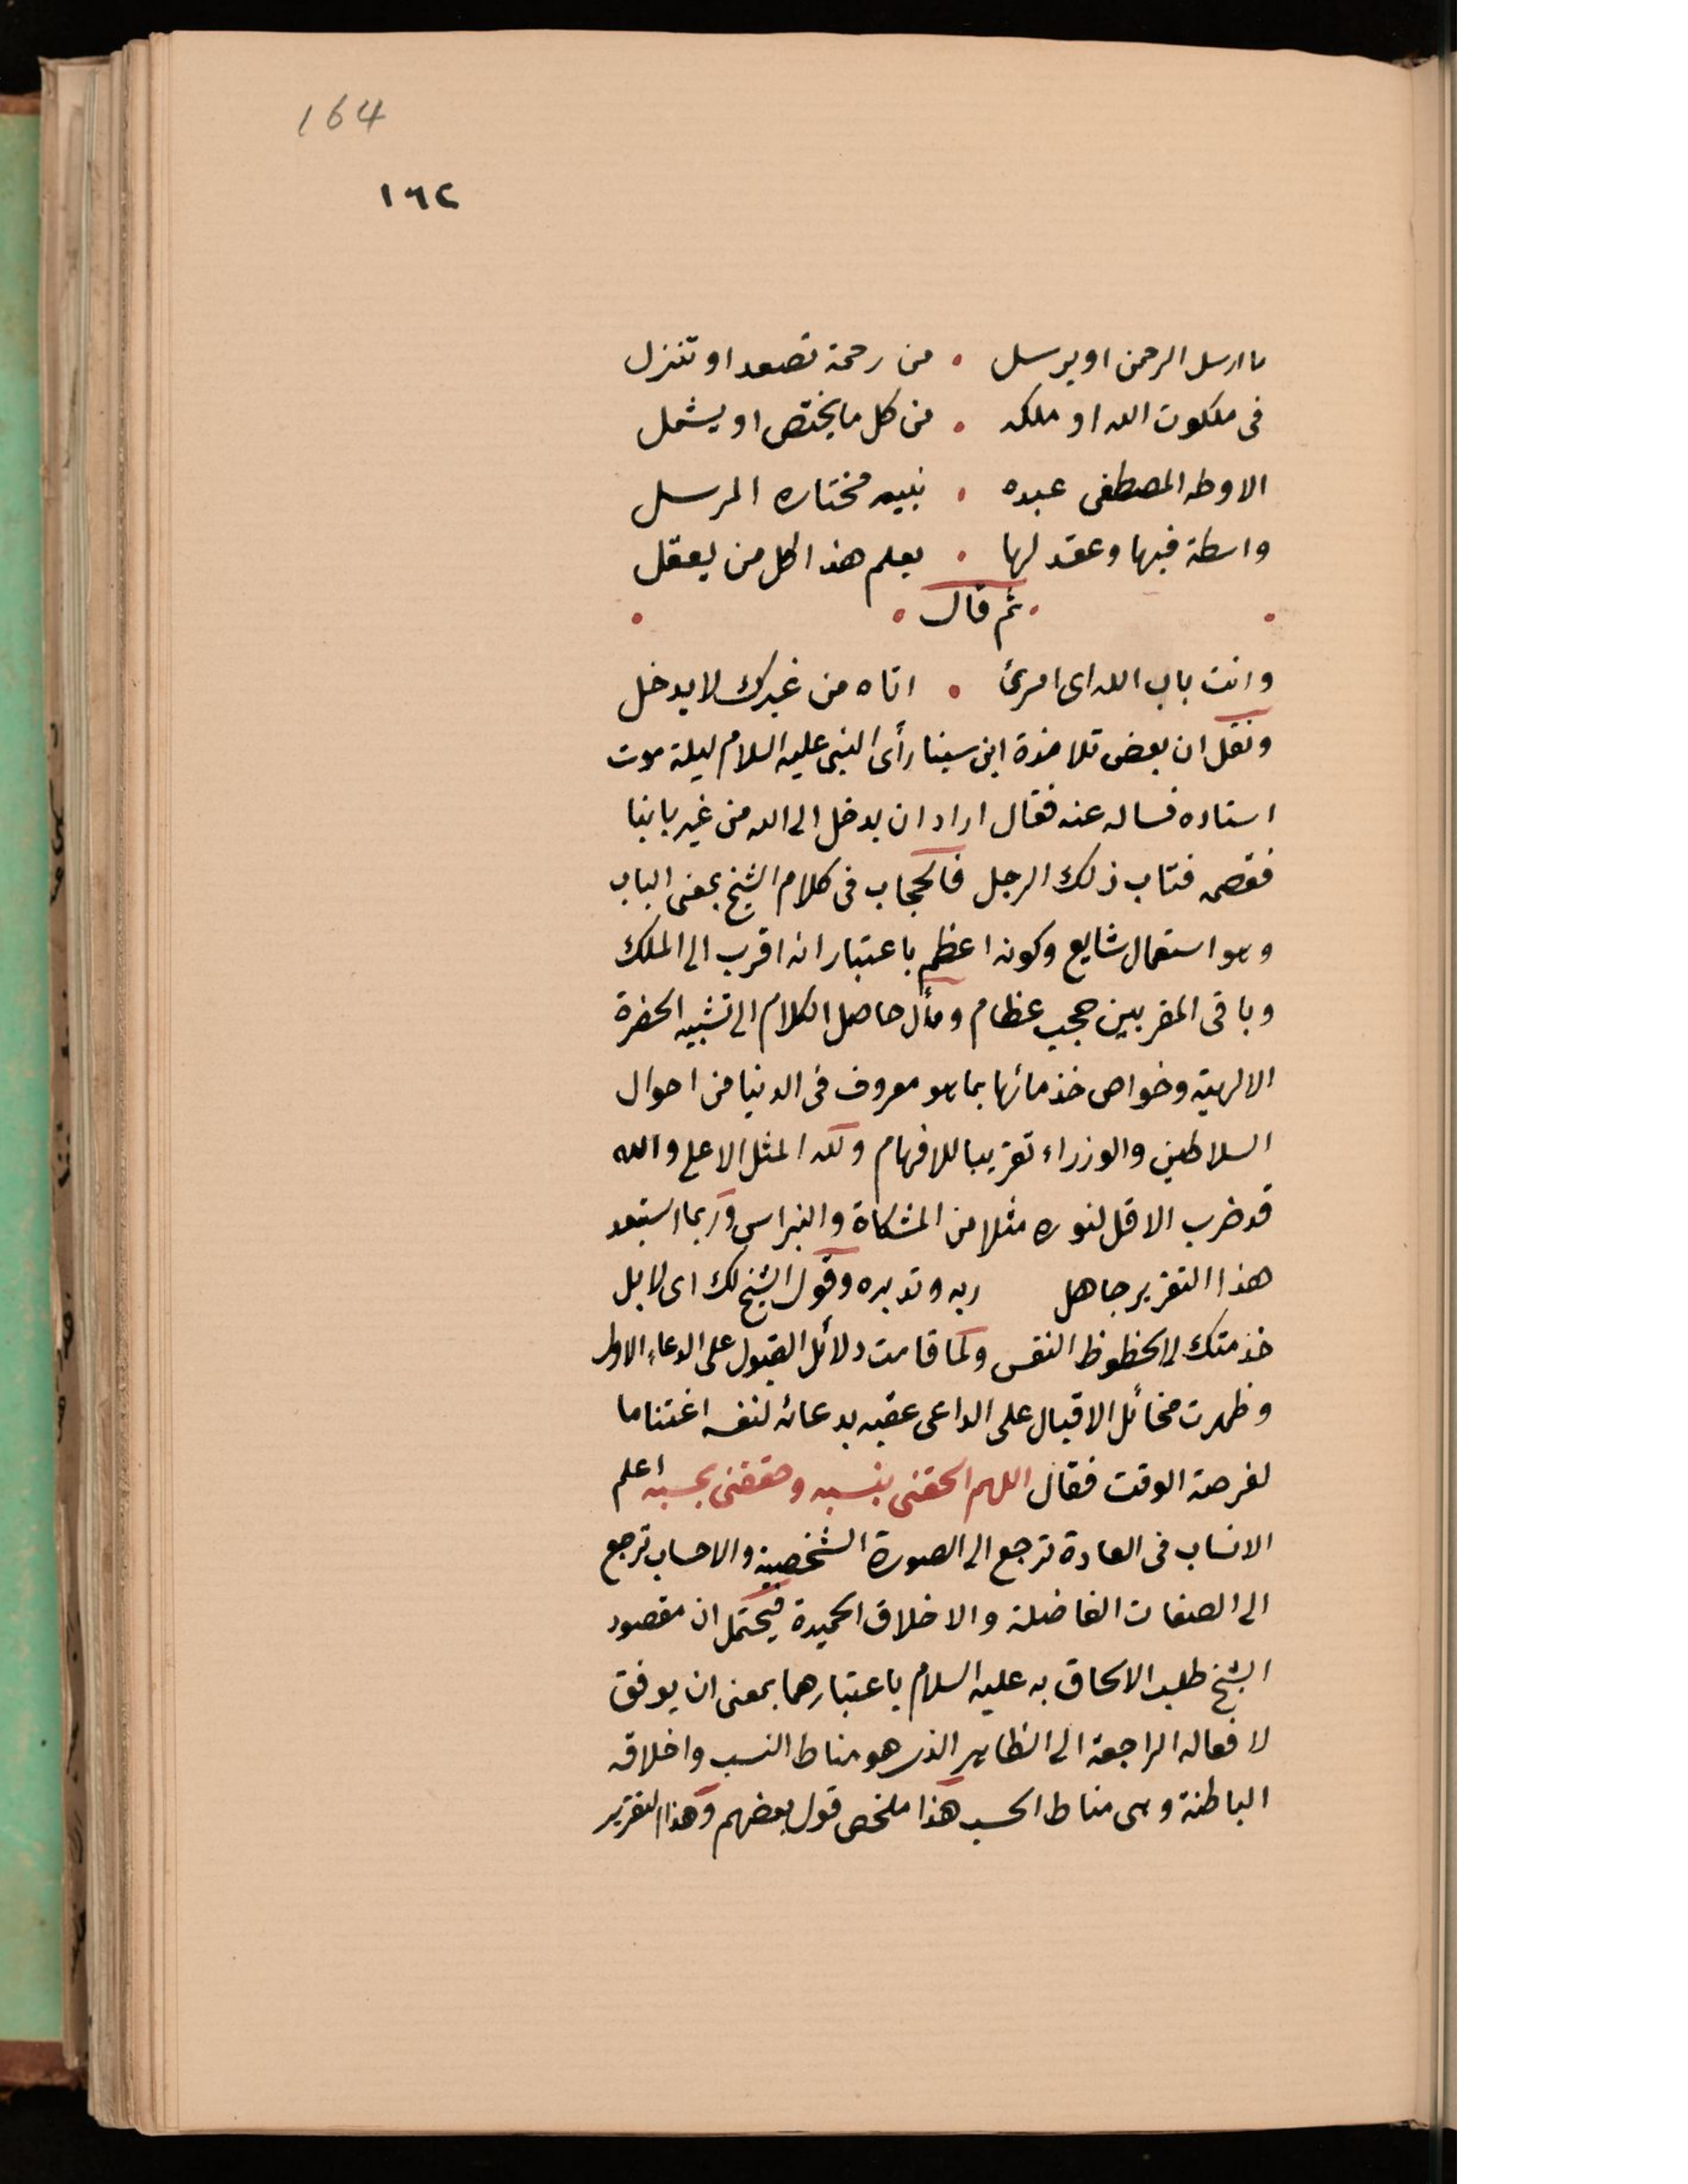 164
١٦٢
ما ارسل الرحمن او يرسل . من رحمة تصعد او تنزل
فى ملكوت الله او ملكه . من كل ما يختص او يشمل
الا وطه المصطفى عبده . نبيه مختاره المرسل
واسطة فيها وعقد لها . يعلم هذا كل من يعقل
. ثم قال .
وانت باب الله اى امرئ . اتاه من غيرك لا يدخل
ونقل ان بعض تلامذة ابن سينا رأى النبى عليه السلام ليلة موت
استاده فساله عنه فقال اراد ان يدخل الى الله من غير بابنا
فقصم فتاب ذلك الرجل فالحجاب فى كلام الشيخ بمعنى الباب
وهو استعمال شايع وكونه اعظم باعتبار انه اقرب الى الملك
وباقى المقربين حجب عظام ومأل حاصل الكلام الى تشبيه الحضرة
الالهية وخواص خدمائها بما هو معروف فى الدنيا من احوال
السلاطين والوزراء تقريبا للافهام ولله المثل الاعلى والله
قد ضرب الاقل لنوره مثلا من المشكاة والنبراس وربما استبعد
هذا التقرير جاهل ربه وتدبره وقول الشيخ لك اى لا بل
خدمتك لا لحظوظ النفس ولما قامت دلائل القبول على الدعاء الاول
وظهرت مخائل الاقبال على الداعى عقبه بدعائه لنفسه اغتناما
لفرصة الوقت فقال اللهم الحقنى بنسبه وحققنى بحسبه اعلم
الانساب فى العادة ترجع الى الصورة الشخصية والاحساب ترجع
الى الصفات الفاضلة والاخلاق الحميدة فيحتمل ان مقصود
الشيخ طلب الالحاق به عليه السلام باعتبارهما بمعنى ان يوفق
لافعاله الراجعة الى الظاهر الذى هو مناط النسب واخلاقه
الباطنة وهى مناط الحسب هذا ملخص قول بعضهم وهذا التقرير